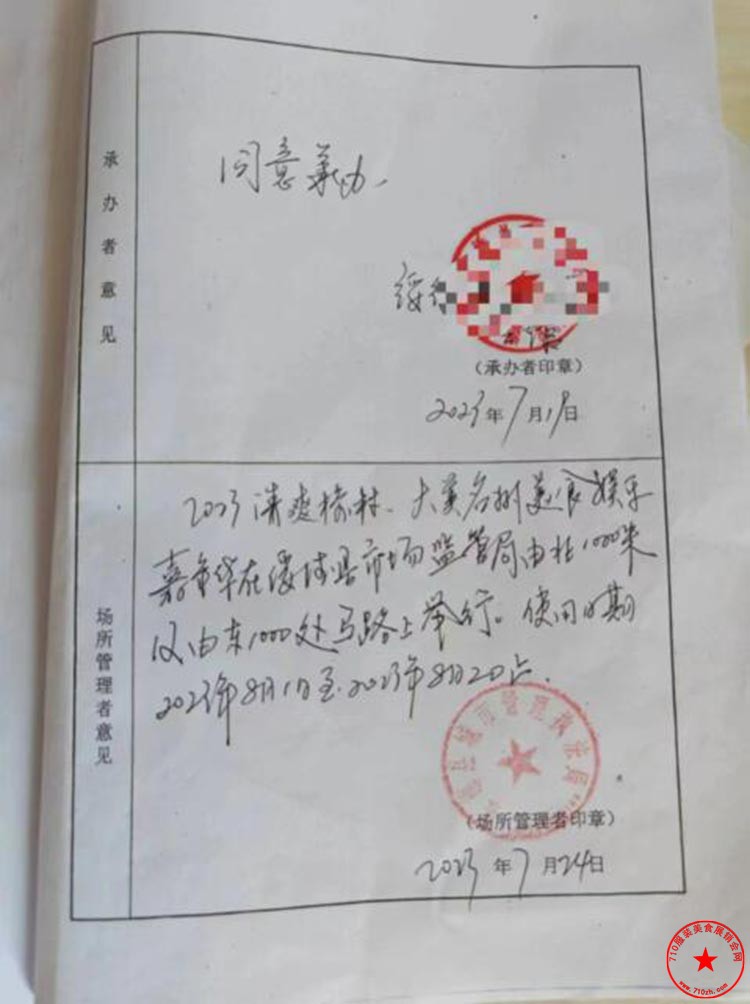 承办者意见
同意承办
绥
(承办者印章)
2023年7月19日
场所管理者意见
2023清爽 村、大美名州美食娱乐
嘉年华在绥 县市场监管局由北1000米
仅由东1000处马路上举行。使用日期
2023年8月1日至2023年8月20日.
城市管理执法局
(场所管理者印章)
2023年7月24日
710服装美食展销会网
www.710zh.com